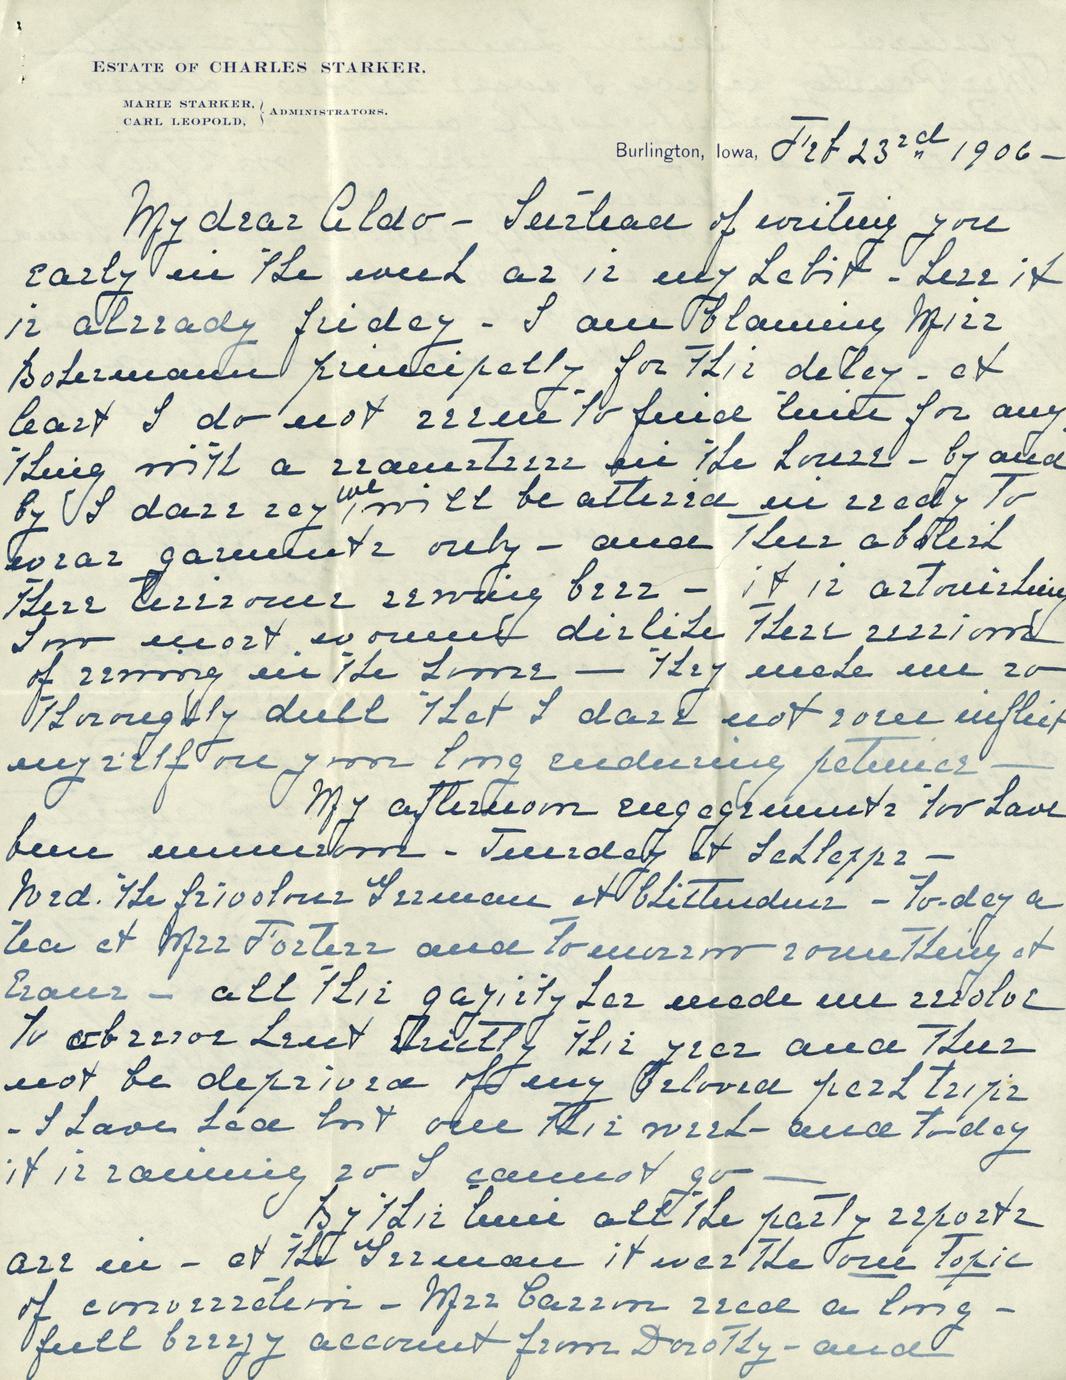 ESTATE OF CHARLES STARKER.
MARIE STARKER,
CARL LEOPOLD,
ADMINISTRATORS.
Burlington, Iowa, Feb 23rd 1906 —
My dear Aldo — Instead of writing you
early in the week as is my habit - here it
is already friday - I am blaming Miss
Bosermann principally for this delay - at
least I do not seem to find time for any
thing with a seamstress in the house - by and
by I dare say we will be attired in ready to
wear garments only - and thus abolish
these tiresome sewing bees - it is astonishing
how most women dislike these sessions
of sewing in the home — they make me so
thoroughly dull that I dare not soon inflict
myself on your long enduring patience —
My afternoon engagements too have
been numerous - Tuesday at Schlepps —
Wed. the frivolous German at Chittendens - to-day a
tea at Mrs Fosters and tomorrow something at
Erans — all this gayiety has made me resolve
to observe Lent strictly this year and thus
not be deprived of my beloved park trips
- I have had but one this week - and to-day
it is raining so I cannot go —
By this time all the party reports
are in - at the German it was the one topic
of conversation - Mrs Carson read a long -
full breezy account from Dorothy - and